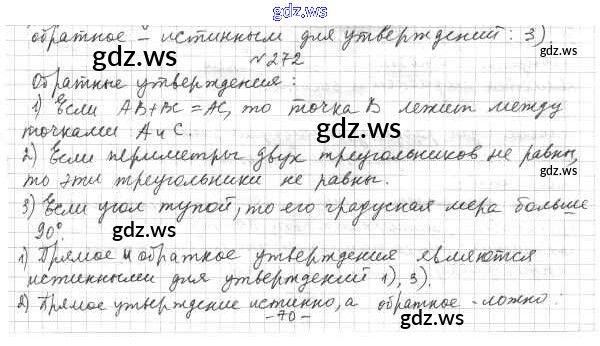 gdz.ws
обратное – истинным для утверждений: 3).
gdz.ws
№272
Обратные утверждения:
gdz.ws
1) Если AB+BC=AC, то точка B лежит между
точками A и C.
gdz.ws
2) Если периметры двух треугольников не равны,
то эти треугольники не равны.
gdz.ws
3) Если угол тупой, то его градусная мера больше
90°.
gdz.ws
1) Прямое и обратное утверждения являются
истинными для утверждений 1), 3).
gdz.ws
2) Прямое утверждение истинно, а обратное - ложно:
-70-
gdz.ws